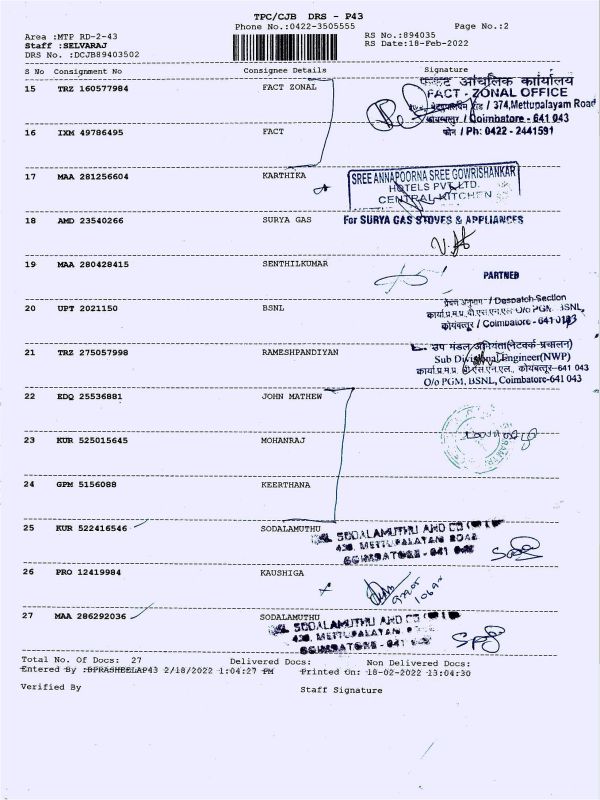 TPC/CJB DRS - P43
Phone No.:0422-3505555 Page No.:2
Area :MTP RD-2-43 RS No.:894035
Staff :SELVARAJ RS Date:18-Feb-2022
DRS No. :DCJB89403502
S No Consignment No Consignee Details Signature
15 TRZ 160577984 FACT ZONAL
आंचलिक कार्यालय
FACT - ZONAL OFFICE
रोड / 374,Mettupalayam Road
कोयम्बत्तूर / Coimbatore - 641 043
फोन / Ph: 0422 - 2441591
16 IXM 49786495 FACT
17 MAA 281256604 KARTHIKA
SREE ANNAPOORNA SREE GOWRISHANKAR
HOTELS PVT. LTD.
CENTRAL KITCHEN
18 AMD 23540266 SURYA GAS
For SURYA GAS STOVES & APPLIANCES
19 MAA 280428415 SENTHILKUMAR
PARTNER
20 UPT 2021150 BSNL
प्रेषण अनुभाग / Despatch Section
O/o PGM, BSNL,
कोयंबत्तूर / Coimbatore - 641 043
21 TRZ 275057998 RAMESHPANDIYAN
उप मंडल अभियंता(नेटवर्क प्रचालन)
Sub Divisional Engineer(NWP)
कार्या.प्र.म.प्र. बी.एस.एन.एल., कोयंबत्तूर-641 043
O/o PGM, BSNL, Coimbatore-641 043
22 EDQ 25536881 JOHN MATHEW
23 KUR 525015645 MOHANRAJ
24 GPM 5156088 KEERTHANA
25 KUR 522416546 SODALAMUTHU
SODALAMUTHU AND CO
430, METTUPALAYAM ROAD
COIMBATORE - 641 043
26 PRO 12419984 KAUSHIGA
27 MAA 286292036 SODALAMUTHU
SODALAMUTHU AND CO
430, METTUPALAYAM
COIMBATORE - 641
Total No. Of Docs: 27 Delivered Docs: Non Delivered Docs:
Entered By :BPRASHEELAP43 2/18/2022 1:04:27 PM Printed On: 18-02-2022 13:04:30
Verified By Staff Signature